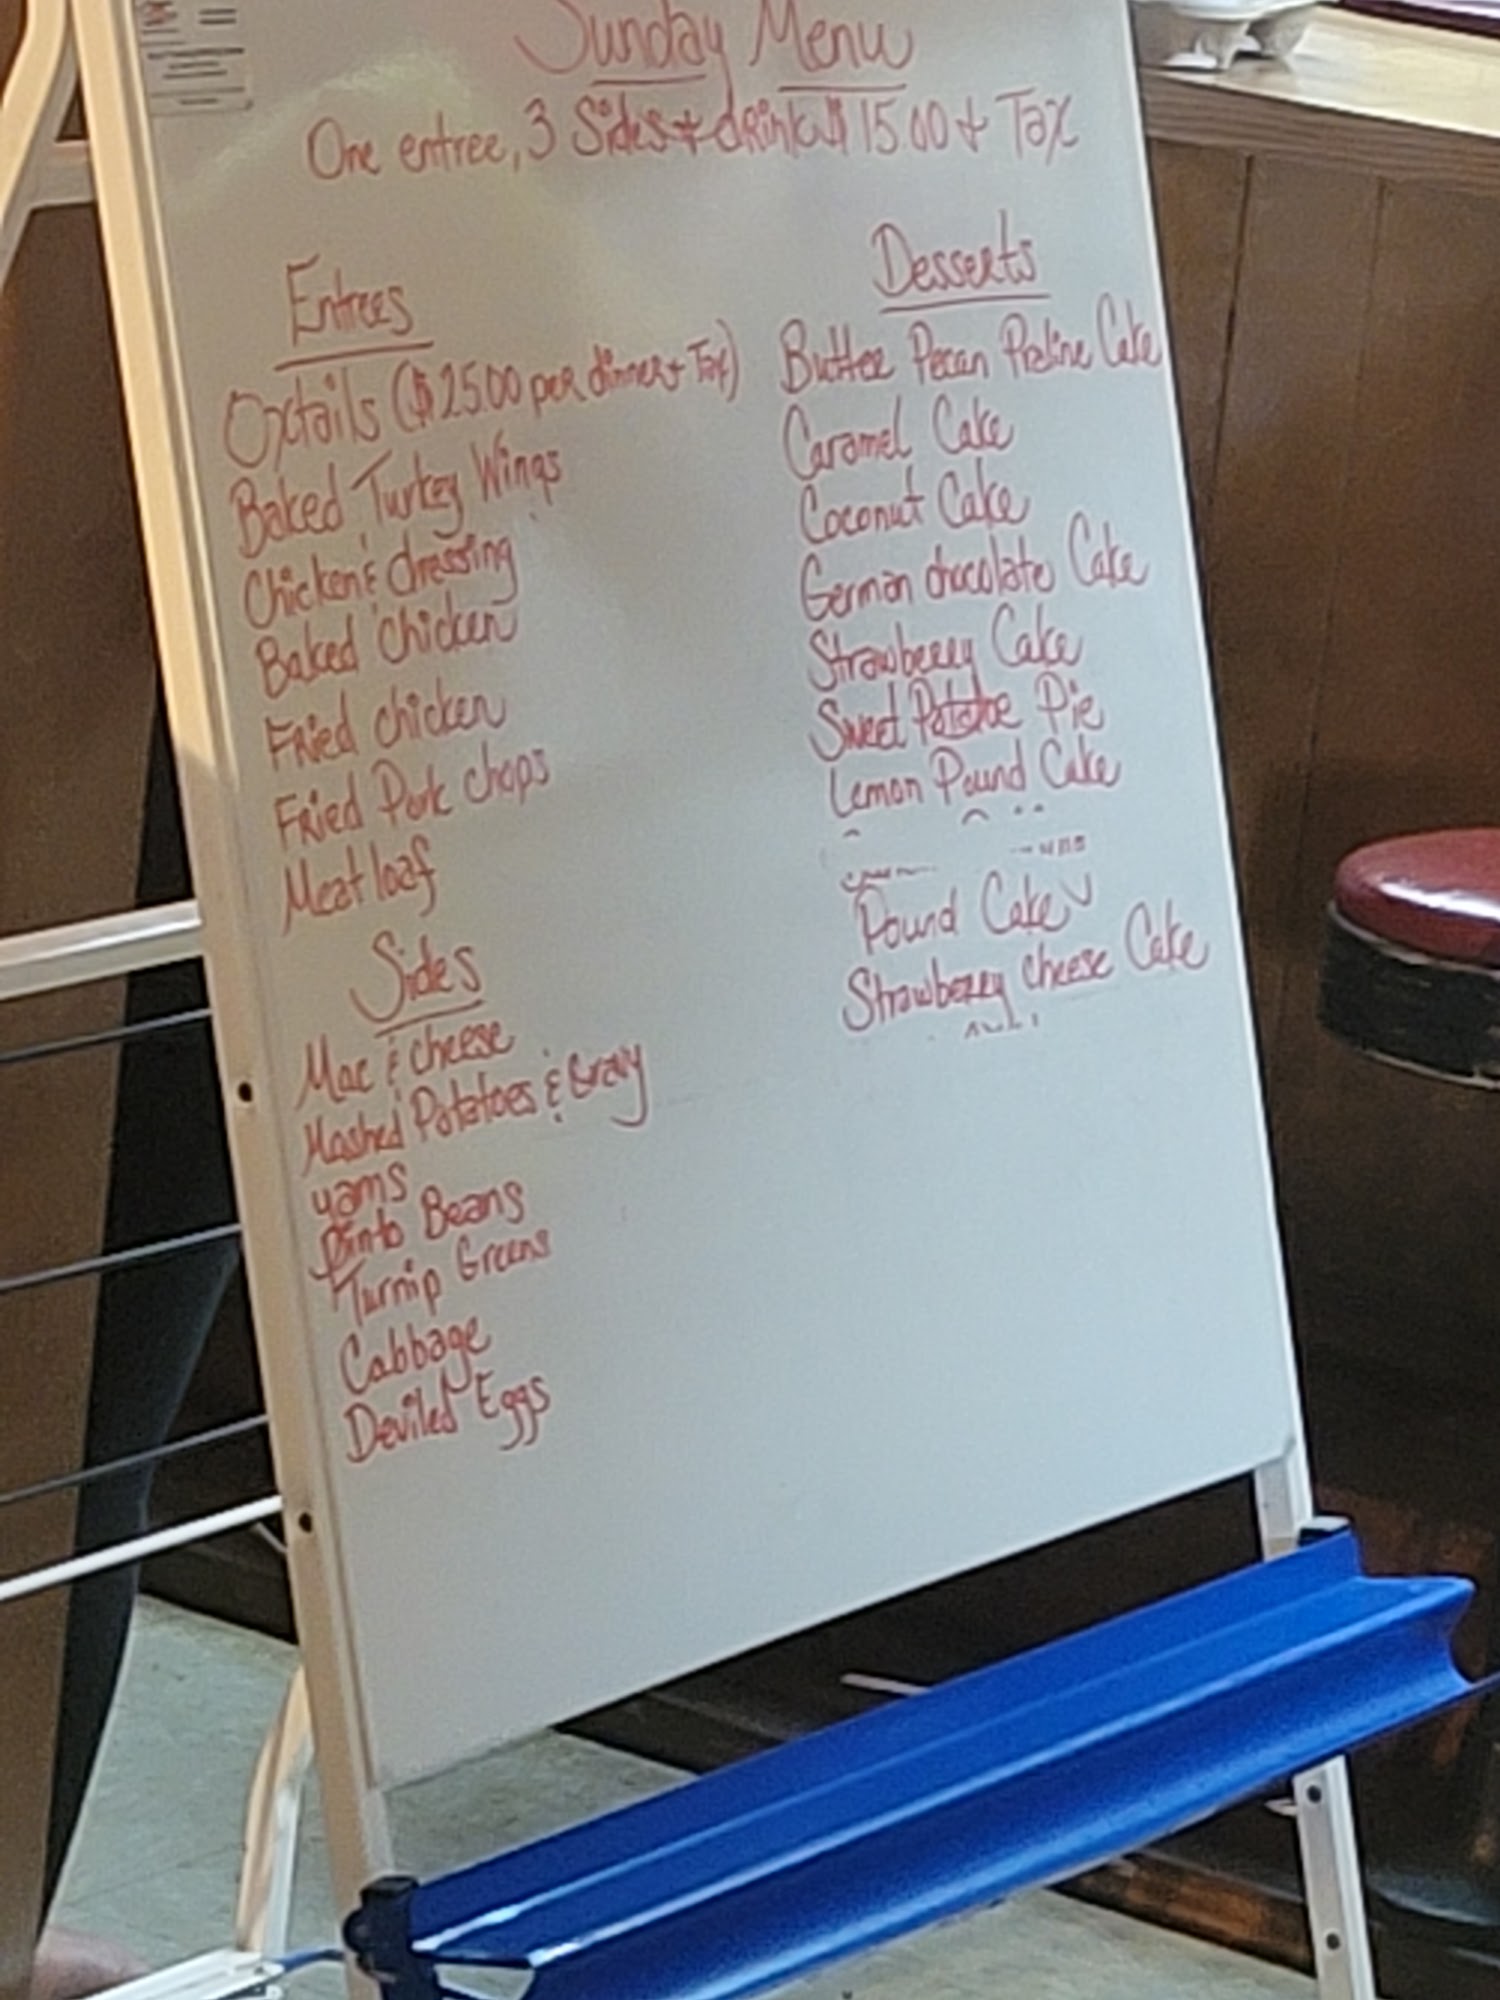 Sunday Menu
One entree, 3 Sides + drink $15.00 + Tax
Entrees
Oxtails ($25.00 per dinner + Tax)
Baked Turkey Wings
Chicken & dressing
Baked chicken
Fried chicken
Fried Pork chops
Meat loaf
Sides
Mac & cheese
Mashed Potatoes & Gravy
yams
Pinto Beans
Turnip Greens
Cabbage
Deviled Eggs
Desserts
Butter Pecan Praline Cake
Caramel Cake
Coconut Cake
German chocolate Cake
Strawberry Cake
Sweet Potatoe Pie
Lemon Pound Cake
Pound Cake
Strawberry cheese Cake